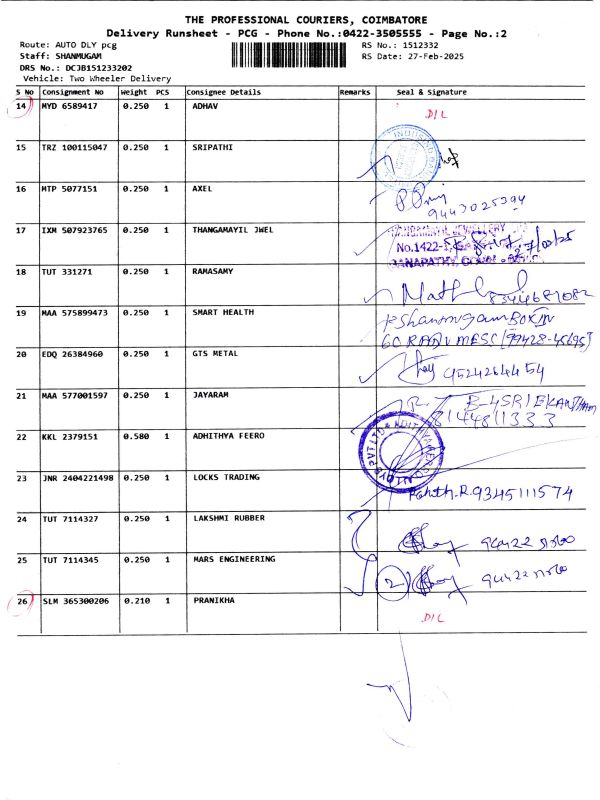 THE PROFESSIONAL COURIERS, COIMBATORE
Delivery Runsheet - PCG - Phone No.:0422-3505555 - Page No.:2
Route: AUTO DLY pcg
RS No.: 1512332
Staff: SHANMUGAM
RS Date: 27-Feb-2025
DRS No.: DCJB151233202
Vehicle: Two Wheeler Delivery
S No Consignment No Weight PCS Consignee Details Remarks Seal & Signature
14 MYD 6589417 0.250 1 ADHAV D/L
15 TRZ 100115047 0.250 1 SRIPATHI
16 MTP 5077151 0.250 1 AXEL
9443025394
17 IXM 507923765 0.250 1 THANGAMAYIL JWEL
No.1422-
18 TUT 331271 0.250 1 RAMASAMY
8344681082
19 MAA 575899473 0.250 1 SMART HEALTH
20 EDQ 26384960 0.250 1 GTS METAL
9524264454
21 MAA 577001597 0.250 1 JAYARAM
8144811333
22 KKL 2379151 0.580 1 ADHITHYA FEERO
23 JNR 2404221498 0.250 1 LOCKS TRADING
9345111574
24 TUT 7114327 0.250 1 LAKSHMI RUBBER
25 TUT 7114345 0.250 1 MARS ENGINEERING
2
26 SLM 365300206 0.210 1 PRANIKHA D/L